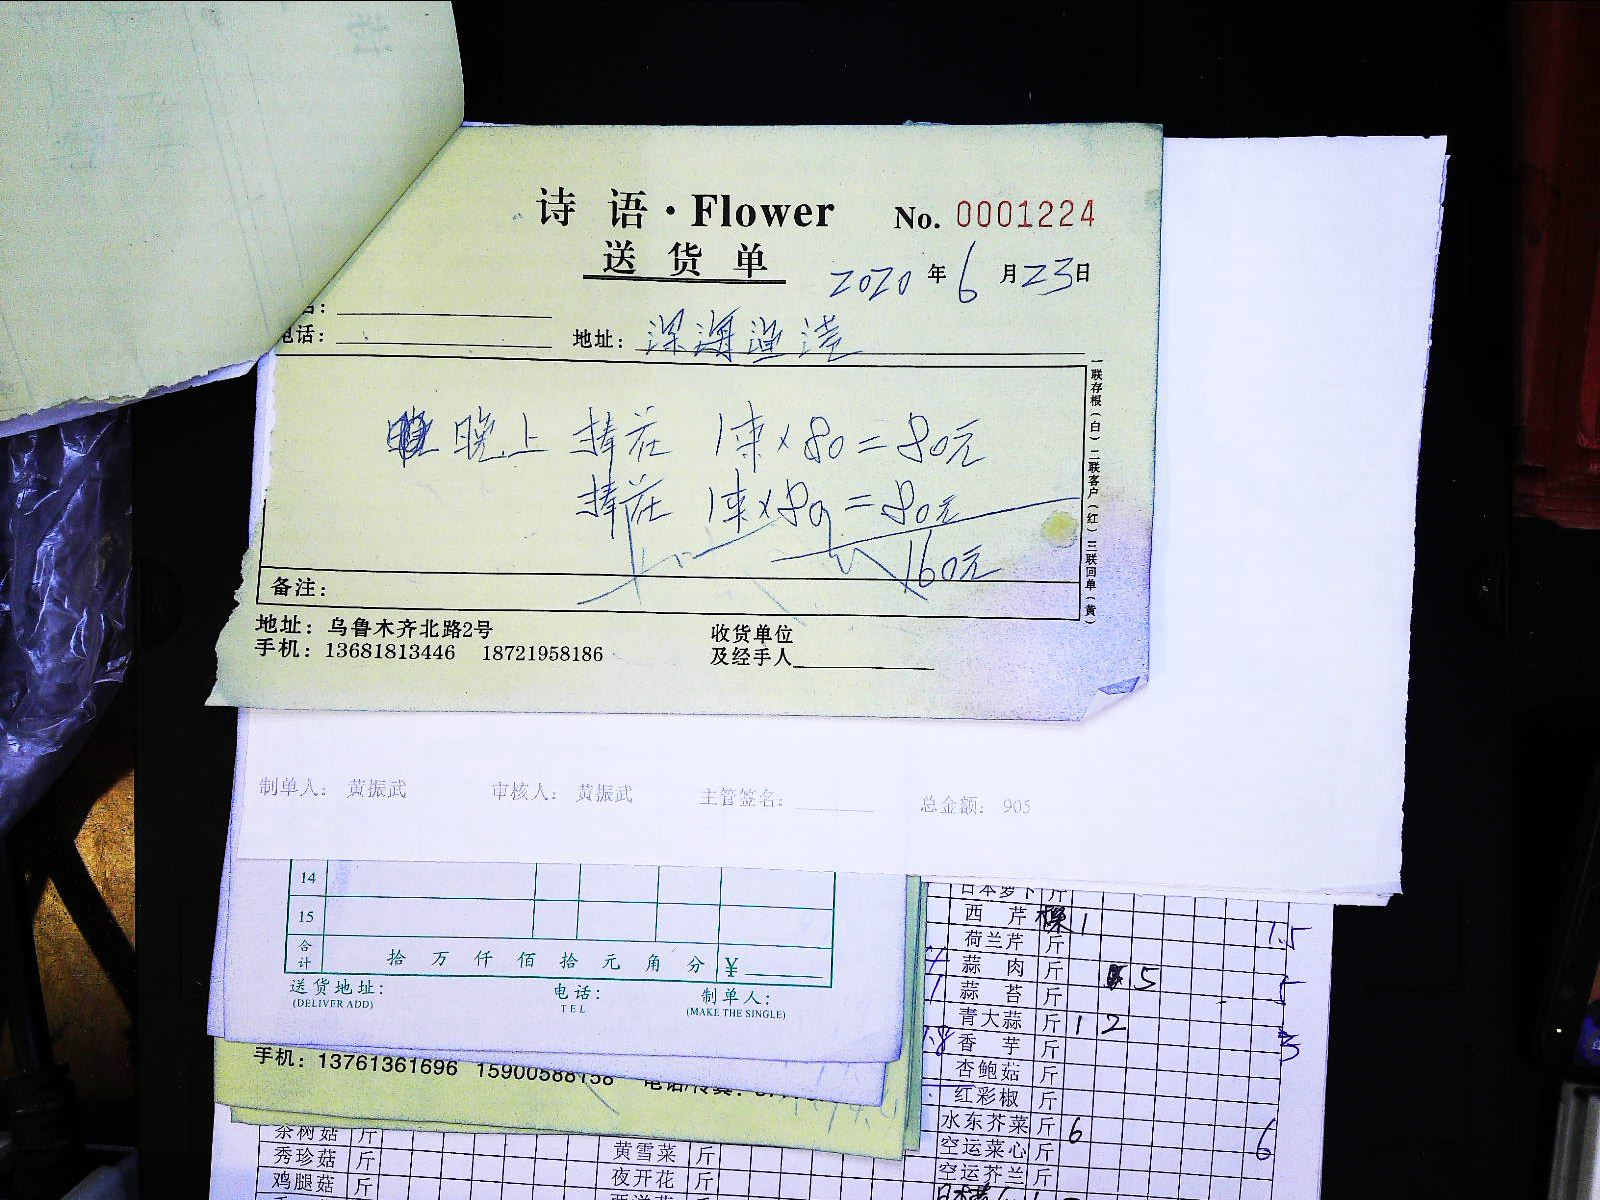 诗语·Flower No. 0001224
送货单 2020年6月23日
电话: 地址: 深海渔港
晚上 捧花 1束×80=80元
捧花 1束×80=80元
160元
备注:
一联存根(白)二联客户(红)三联回单(黄)
地址: 乌鲁木齐北路2号 收货单位
手机: 13681813446 18721958186 及经手人
制单人: 黄振武 审核人: 黄振武 主管签名: 总金额: 905
14
15
合计 拾 万 仟 佰 拾 元 角 分 ¥
送货地址: 电话: 制单人:
(DELIVER ADD) TEL (MAKE THE SINGLE)
手机: 13761361696 15900588158
日本萝卜 斤
西芹 1 1.5
荷兰芹 斤
蒜肉 斤 5 5
蒜苔 斤
青大蒜 斤 1 2
香芋 斤 3
杏鲍菇 斤
红彩椒 斤
水东芥菜 斤 6 6
空运菜心 斤
空运芥兰 斤
茶树菇 斤
秀珍菇 斤 黄雪菜 斤
鸡腿菇 斤 夜开花 斤